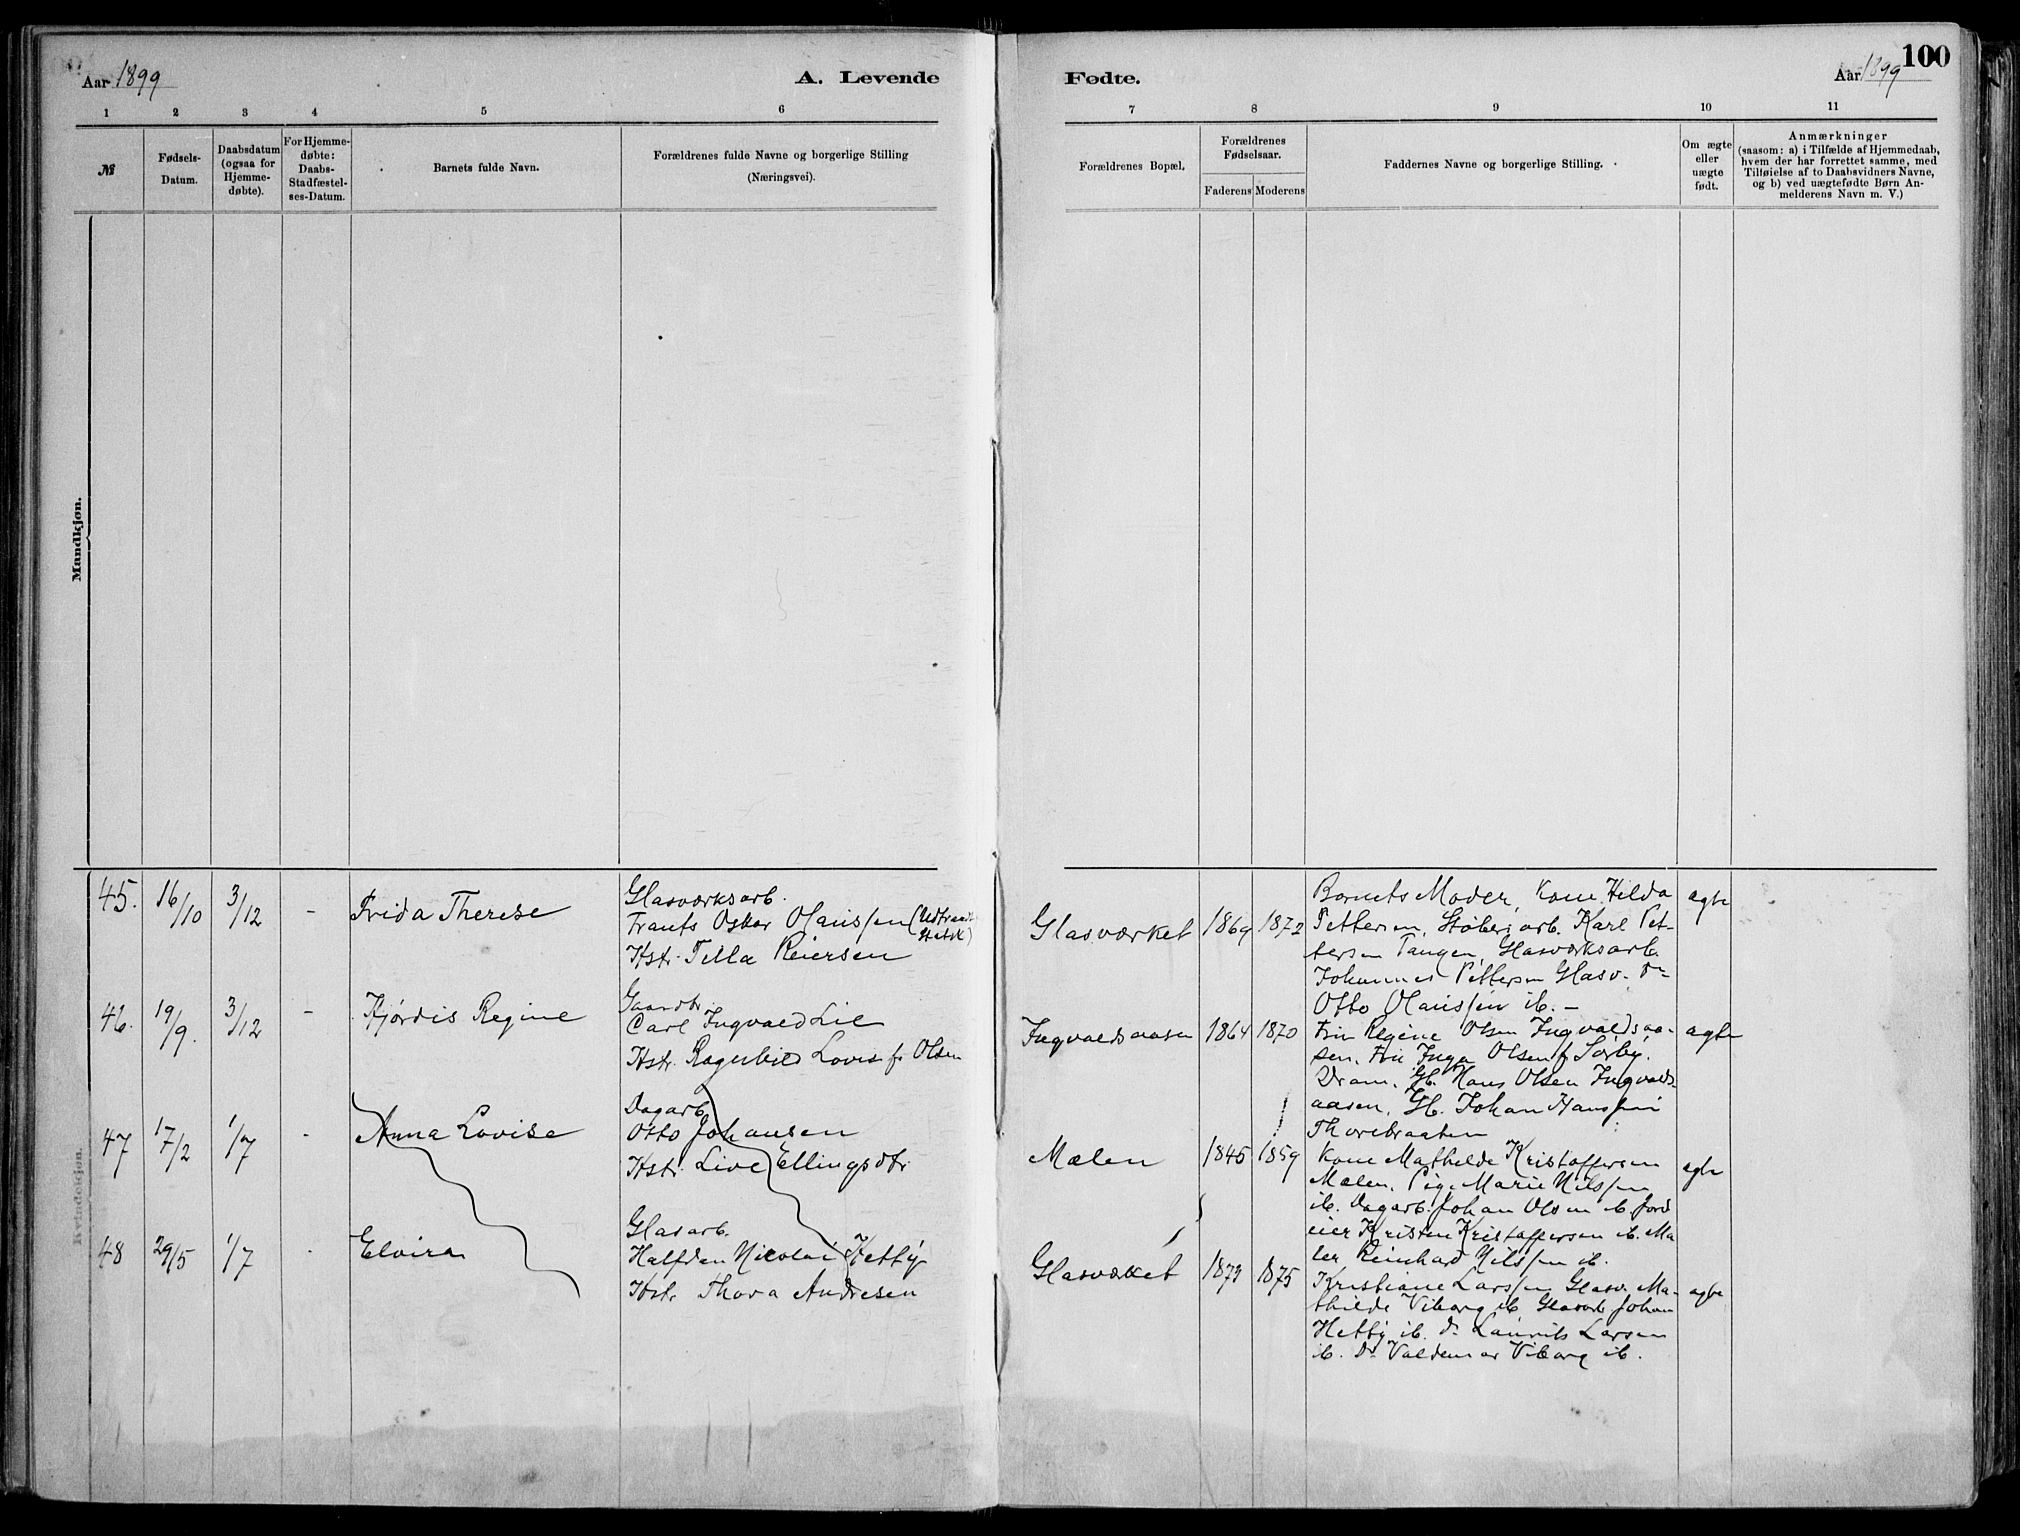 Aar 1899
A. Levende
1 2 3 4 5 6
№
Fødsels-
Datum.
Daabsdatum
(ogsaa for
Hjemme-
døbte).
For Hjemme-
døbte:
Daabs-
Stadfæstel-
ses-Datum.
Barnets fulde Navn.
Forældrenes fulde Navne og borgerlige Stilling
(Næringsvei).
Mandkjøn.
Kvindekjøn.
45. 16/10 3/12 - Frida Therese
Glasværksarb.
Frants Oskar Olaussen
Hstr. Tella Reiersen
46. 19/9. 3/12 - Hjørdis Regine
Gaardbr.
Carl Ingvald Lie
Hstr. Ragnhild Lovise f. Olsen
47 17/2 1/7 - Anna Lovise
Dagarb.
Otto Johansen
Hstr. Live Ellingsdtr
48 29/5 1/7 - Elvira
Glasarb.
Halfdan Nicolai Hetty
Hstr Thora Andresen
Fødte.
Aar 1899
100
7 8 9 10 11
Forældrenes Bopæl.
Forældrenes
Fødselsaar.
Faderens Moderens
Faddernes Navne og borgerlige Stilling.
Om ægte
eller
uægte
født.
Anmærkninger
(saasom: a) i Tilfælde af Hjemmedaab,
hvem der har forrettet samme, med
Tilføielse af to Daabsvidners Navne,
og b) ved uægtefødte Børn An-
melderens Navn m. V.)
Glasværket 1869 1872
Barnets Moder, Kone Hilda
Pettersen, Støberiarb. Karl Pet-
tersen Tangen, Glasværksarb.
Johannes Pettersen Glasv. do
Otto Olaussen ib. -
ægte
Ingvaldsaasen 1864 1870
Fru Regine Olsen Ingvaldsaa-
sen, Fru Inga Olsen f. Sørby.
Dram., Gb. Hans Olsen Ingvalds-
aasen, Gb. Johan Hanssen
Thorebraaten
ægte
Mælen 1845 1859
Kone Mathilde Kristoffersen
Mælen, Pige Marie Nilssen
ib. Dagarb. Johan Olsen ib Jord
eier Kristen Kristoffersen ib. Ma
ler Reinhard Nilssen ib.
ægte
Glasværket 1873 1875
Kristiane Larssen Glasv. Ma-
thilde Viborg ib Glasarb Johan
Hetty ib. do Laurits Larsen
ib. Do Valdemar Viborg ib.
ægte